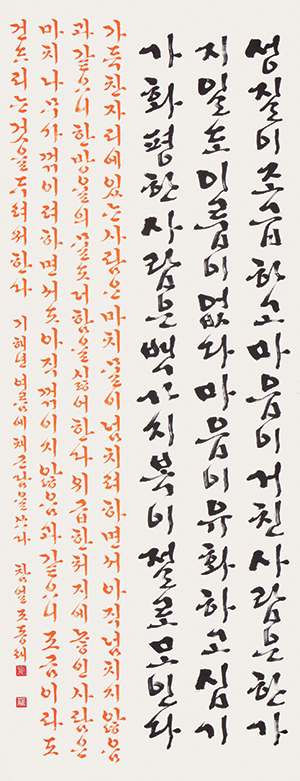 성질이조급하고마음이거친사람은한가
지일도이룸이없다마음이유화하고심기
가화평한사람은백가지복이절로모인다
가득찬자리에있는사람은마치물이넘치려하면서아직넘치지않음
과같으니한방울의물도더함을싫어한다위급한처지에놓인사람은
마치나무가꺾이려하면서도아직꺾이지않음과같으니조금이라도
건드리는것을두려워한다 기해년여름에채근담을쓰다